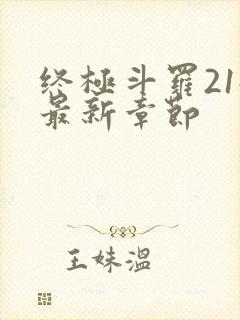 终極斗羅21
最新章節
王妹温